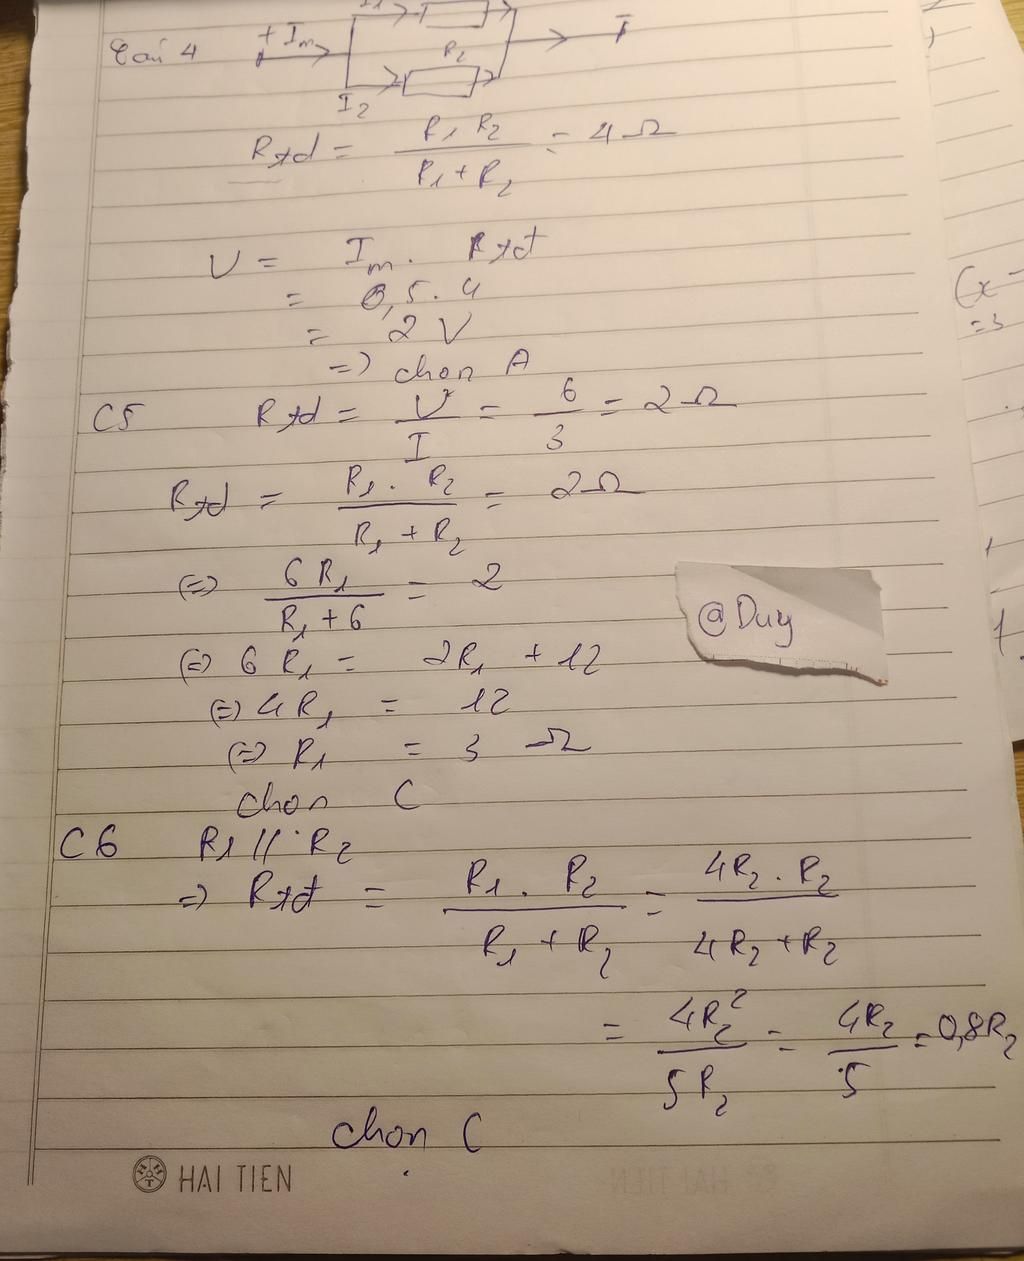 Câu 4
+ Im
I1
R2
I2
Rtđ = R1 R2 / R1 + R2 = 4 Ω
U = Im . Rtđ
= 0,5 . 4
= 2 V
=> chọn A
C5 Rtđ = U / I = 6 / 3 = 2 Ω
Rtđ = R1 . R2 / R1 + R2 = 2 Ω
(=) 6 R1 / R1 + 6 = 2
(=) 6 R1 = 2R1 + 12
(=) 4 R1 = 12
(=) R1 = 3 Ω
@Duy
chọn C
C6 R1 // R2
=> Rtđ = R1 . R2 / R1 + R2 = 4R2 . R2 / 4R2 + R2
= 4R2² / 5R2 = 4R2 / 5 = 0,8R2
chọn C
HAI TIEN